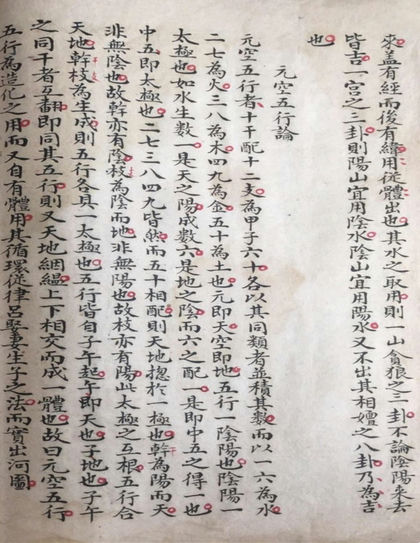 來盖有經而後有緯用從體出也其水之取用則一山貪狼之三卦不論陰陽來去
皆吉一宮之三卦則陽山宜用陰水陰山宜用陽水又不出其相嬗之八卦乃為吉
也
元空五行論
元空五行者十干配十二支為甲子六十各以其同類者並積其數而以一六為水
二七為火三八為木四九為金五十為土也元即天空即地五行一陰陽也陰陽一
太極也如水生數一是天之陽成數六是地之陰而六之配一是即中五之得一也
中五即太極也二七三八四九皆然而五十相配則天地揔於一極也幹為陽而天
非無陰也故幹亦有陰枝為陰而地非無陽也故枝亦有陽此太極之互根五行合
天地幹枝為生成則五行各具一太極也五行皆自子午起午即天也子地也子午
之同干者互翻即同其五行則又天地絪縕上下相交而成一體也故曰元空五行
五行為造化之用而又自有體用其循環從律呂娶妻生子之法而實出河圖